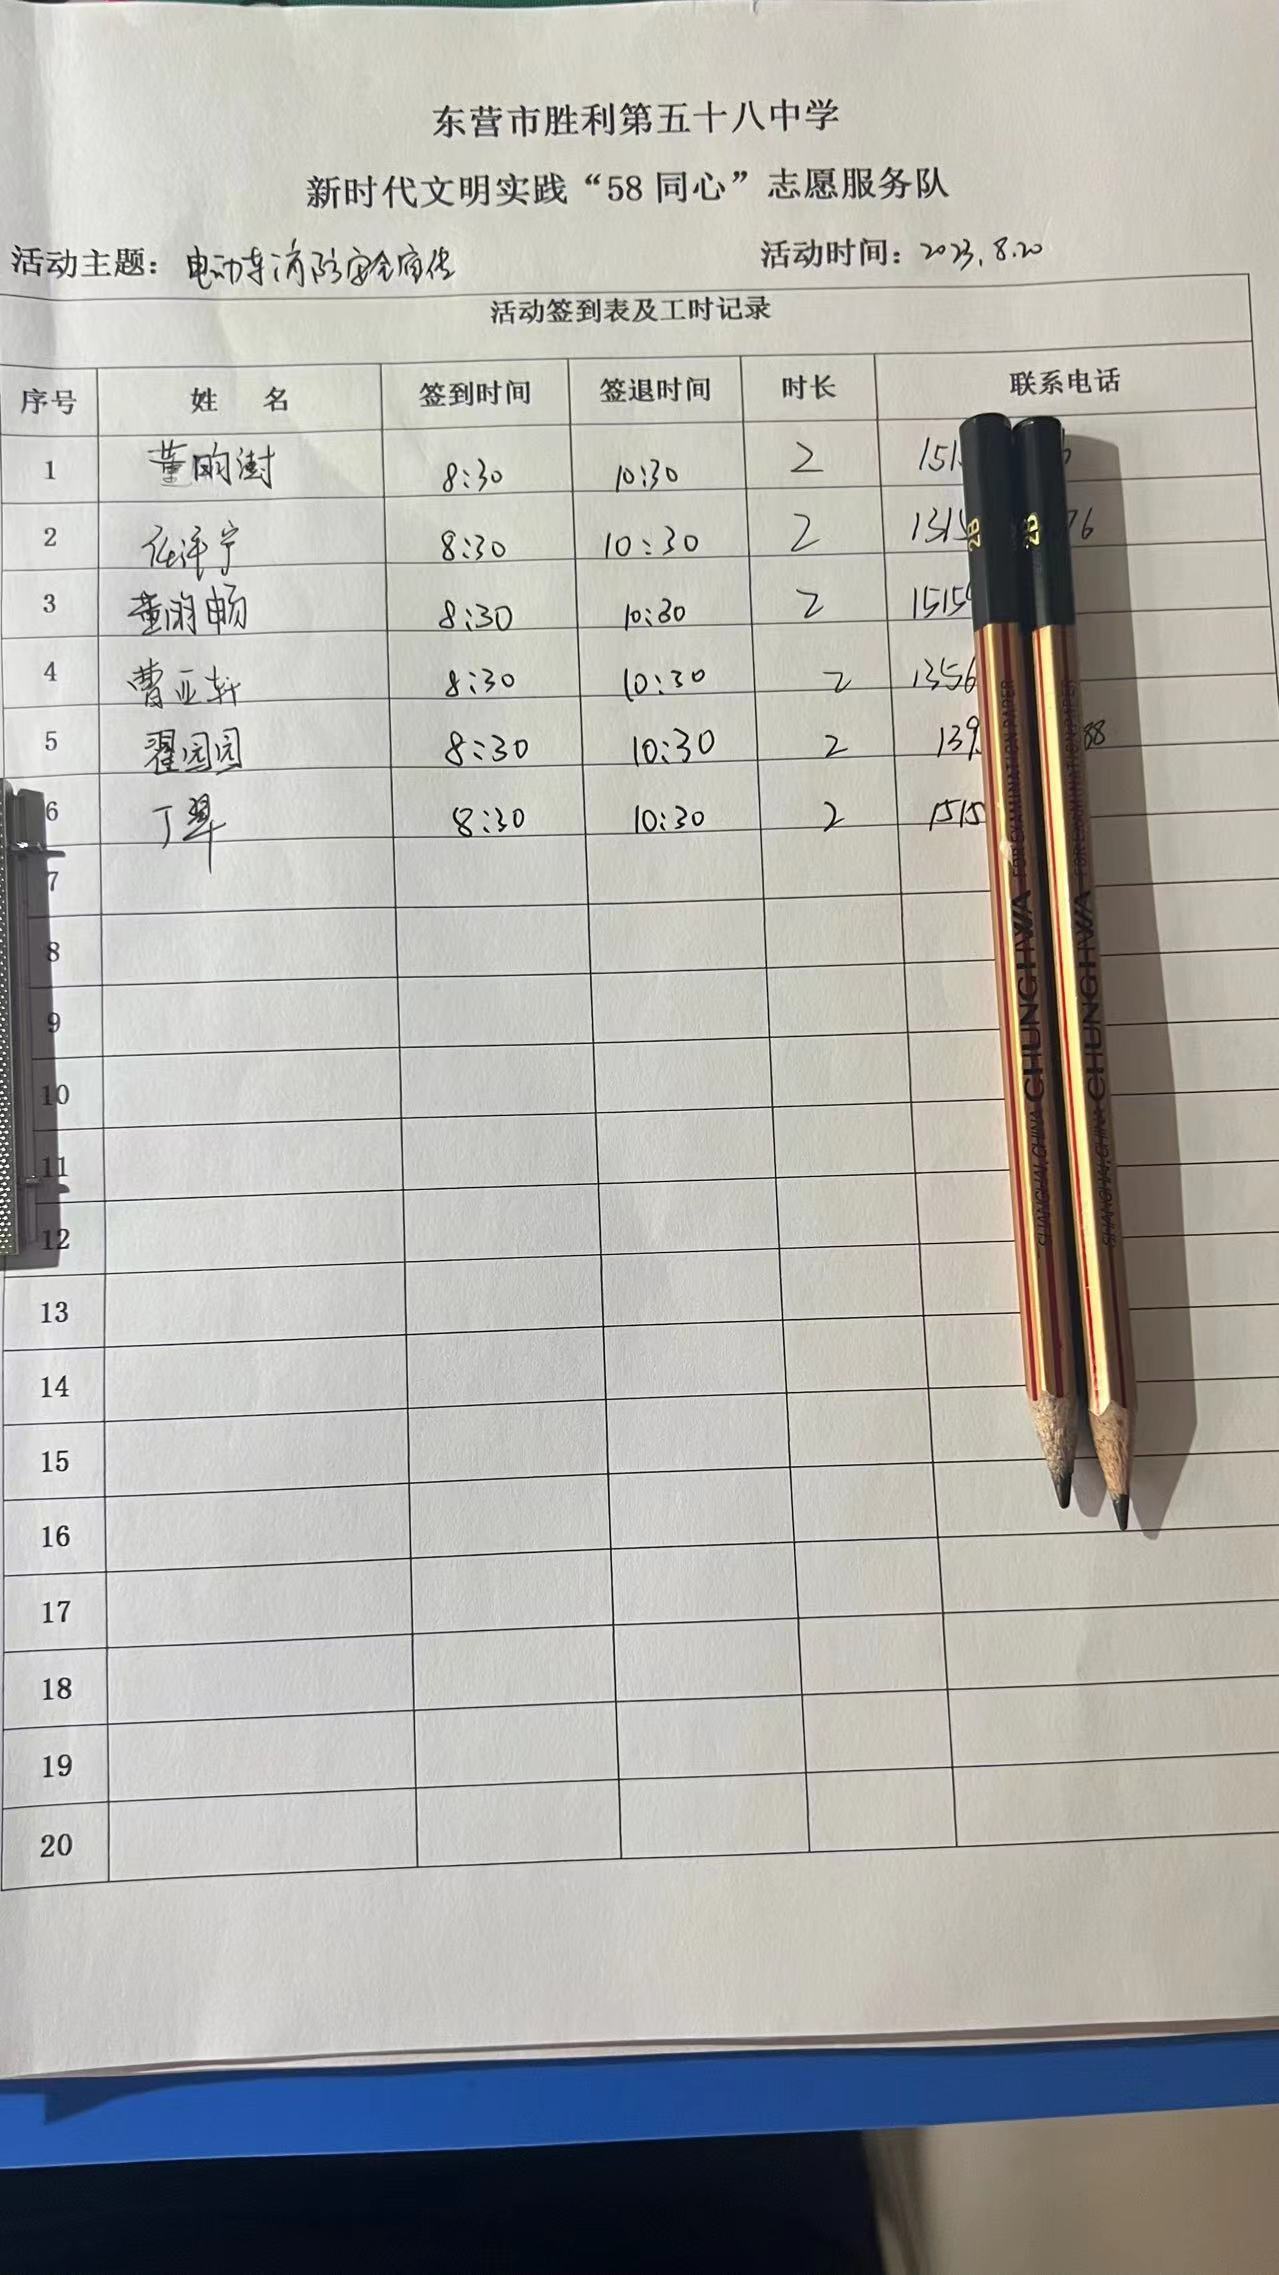 东营市胜利第五十八中学
新时代文明实践“58 同心”志愿服务队
活动主题：电动车消防安全宣传 活动时间：2023.8.20
活动签到表及工时记录
序号 姓 名 签到时间 签退时间 时长 联系电话
1 董昀澍 8:30 10:30 2 151
2 任泽宁 8:30 10:30 2 1315 76
3 董雨畅 8:30 10:30 2 1515
4 曹亚轩 8:30 10:30 2 1356
5 翟园园 8:30 10:30 2 139 88
6 丁翠 8:30 10:30 2 1515
7
8
9
10
11
12
13
14
15
16
17
18
19
20
2B
SHANGHAI, CHINA CHUNGHWA FOR EXAMINATION PAPER
2B
SHANGHAI, CHINA CHUNGHWA FOR EXAMINATION PAPER